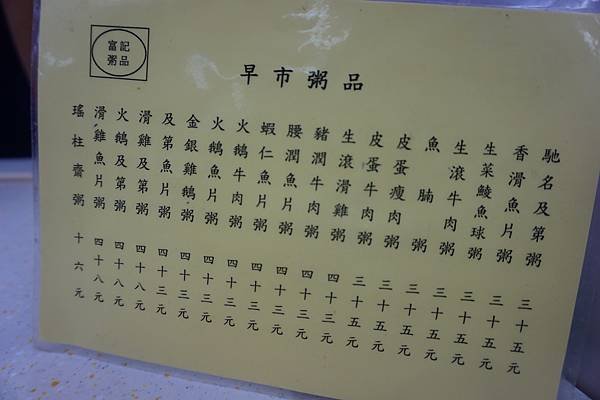 富記
粥品
早市粥品
馳名及第粥 三十五元
香滑魚片粥 三十五元
生菜鯪魚球粥 三十五元
生滾牛肉粥 三十五元
魚腩粥 三十五元
皮蛋瘦肉粥 三十五元
皮蛋牛肉粥 三十五元
生滾滑雞粥 四十三元
豬潤牛肉粥 四十三元
腰潤魚片粥 四十三元
蝦仁魚片粥 四十三元
火鵝牛肉粥 四十三元
火鵝魚片粥 四十三元
金銀雞鵝粥 四十三元
及第魚片粥 四十三元
滑雞及第粥 四十三元
火鵝及第粥 四十八元
滑雞魚片粥 四十八元
瑤柱齋粥 十六元